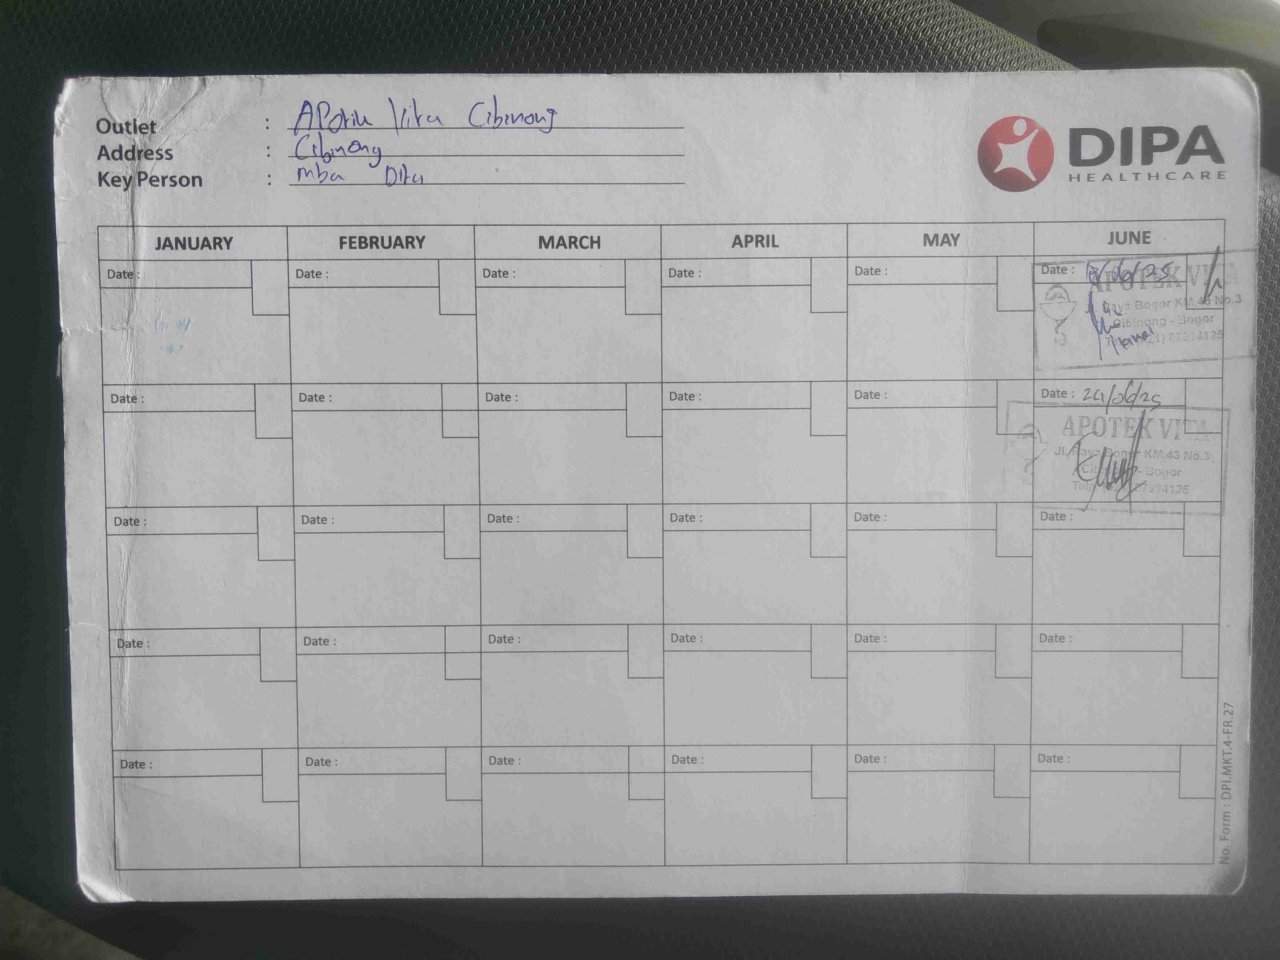 Outlet : APotik Vita Cibinong
Address : Cibinong
Key Person : mba Dita
DIPA
HEALTHCARE
JANUARY FEBRUARY MARCH APRIL MAY JUNE
Date : Date : Date : Date : Date : Date : /6/25
APOTEK VITA
Raya Bogor KM.43 No.3
Cibinong - Bogor
Date : Date : Date : Date : Date : Date : 24/06/25
APOTEK VITA
Jl. Raya Bogor KM.43 No.3
Cibinong - Bogor
Date : Date : Date : Date : Date : Date :
Date : Date : Date : Date : Date : Date :
Date : Date : Date : Date : Date : Date :
No. Form : DPI.MKT.4-FR.27